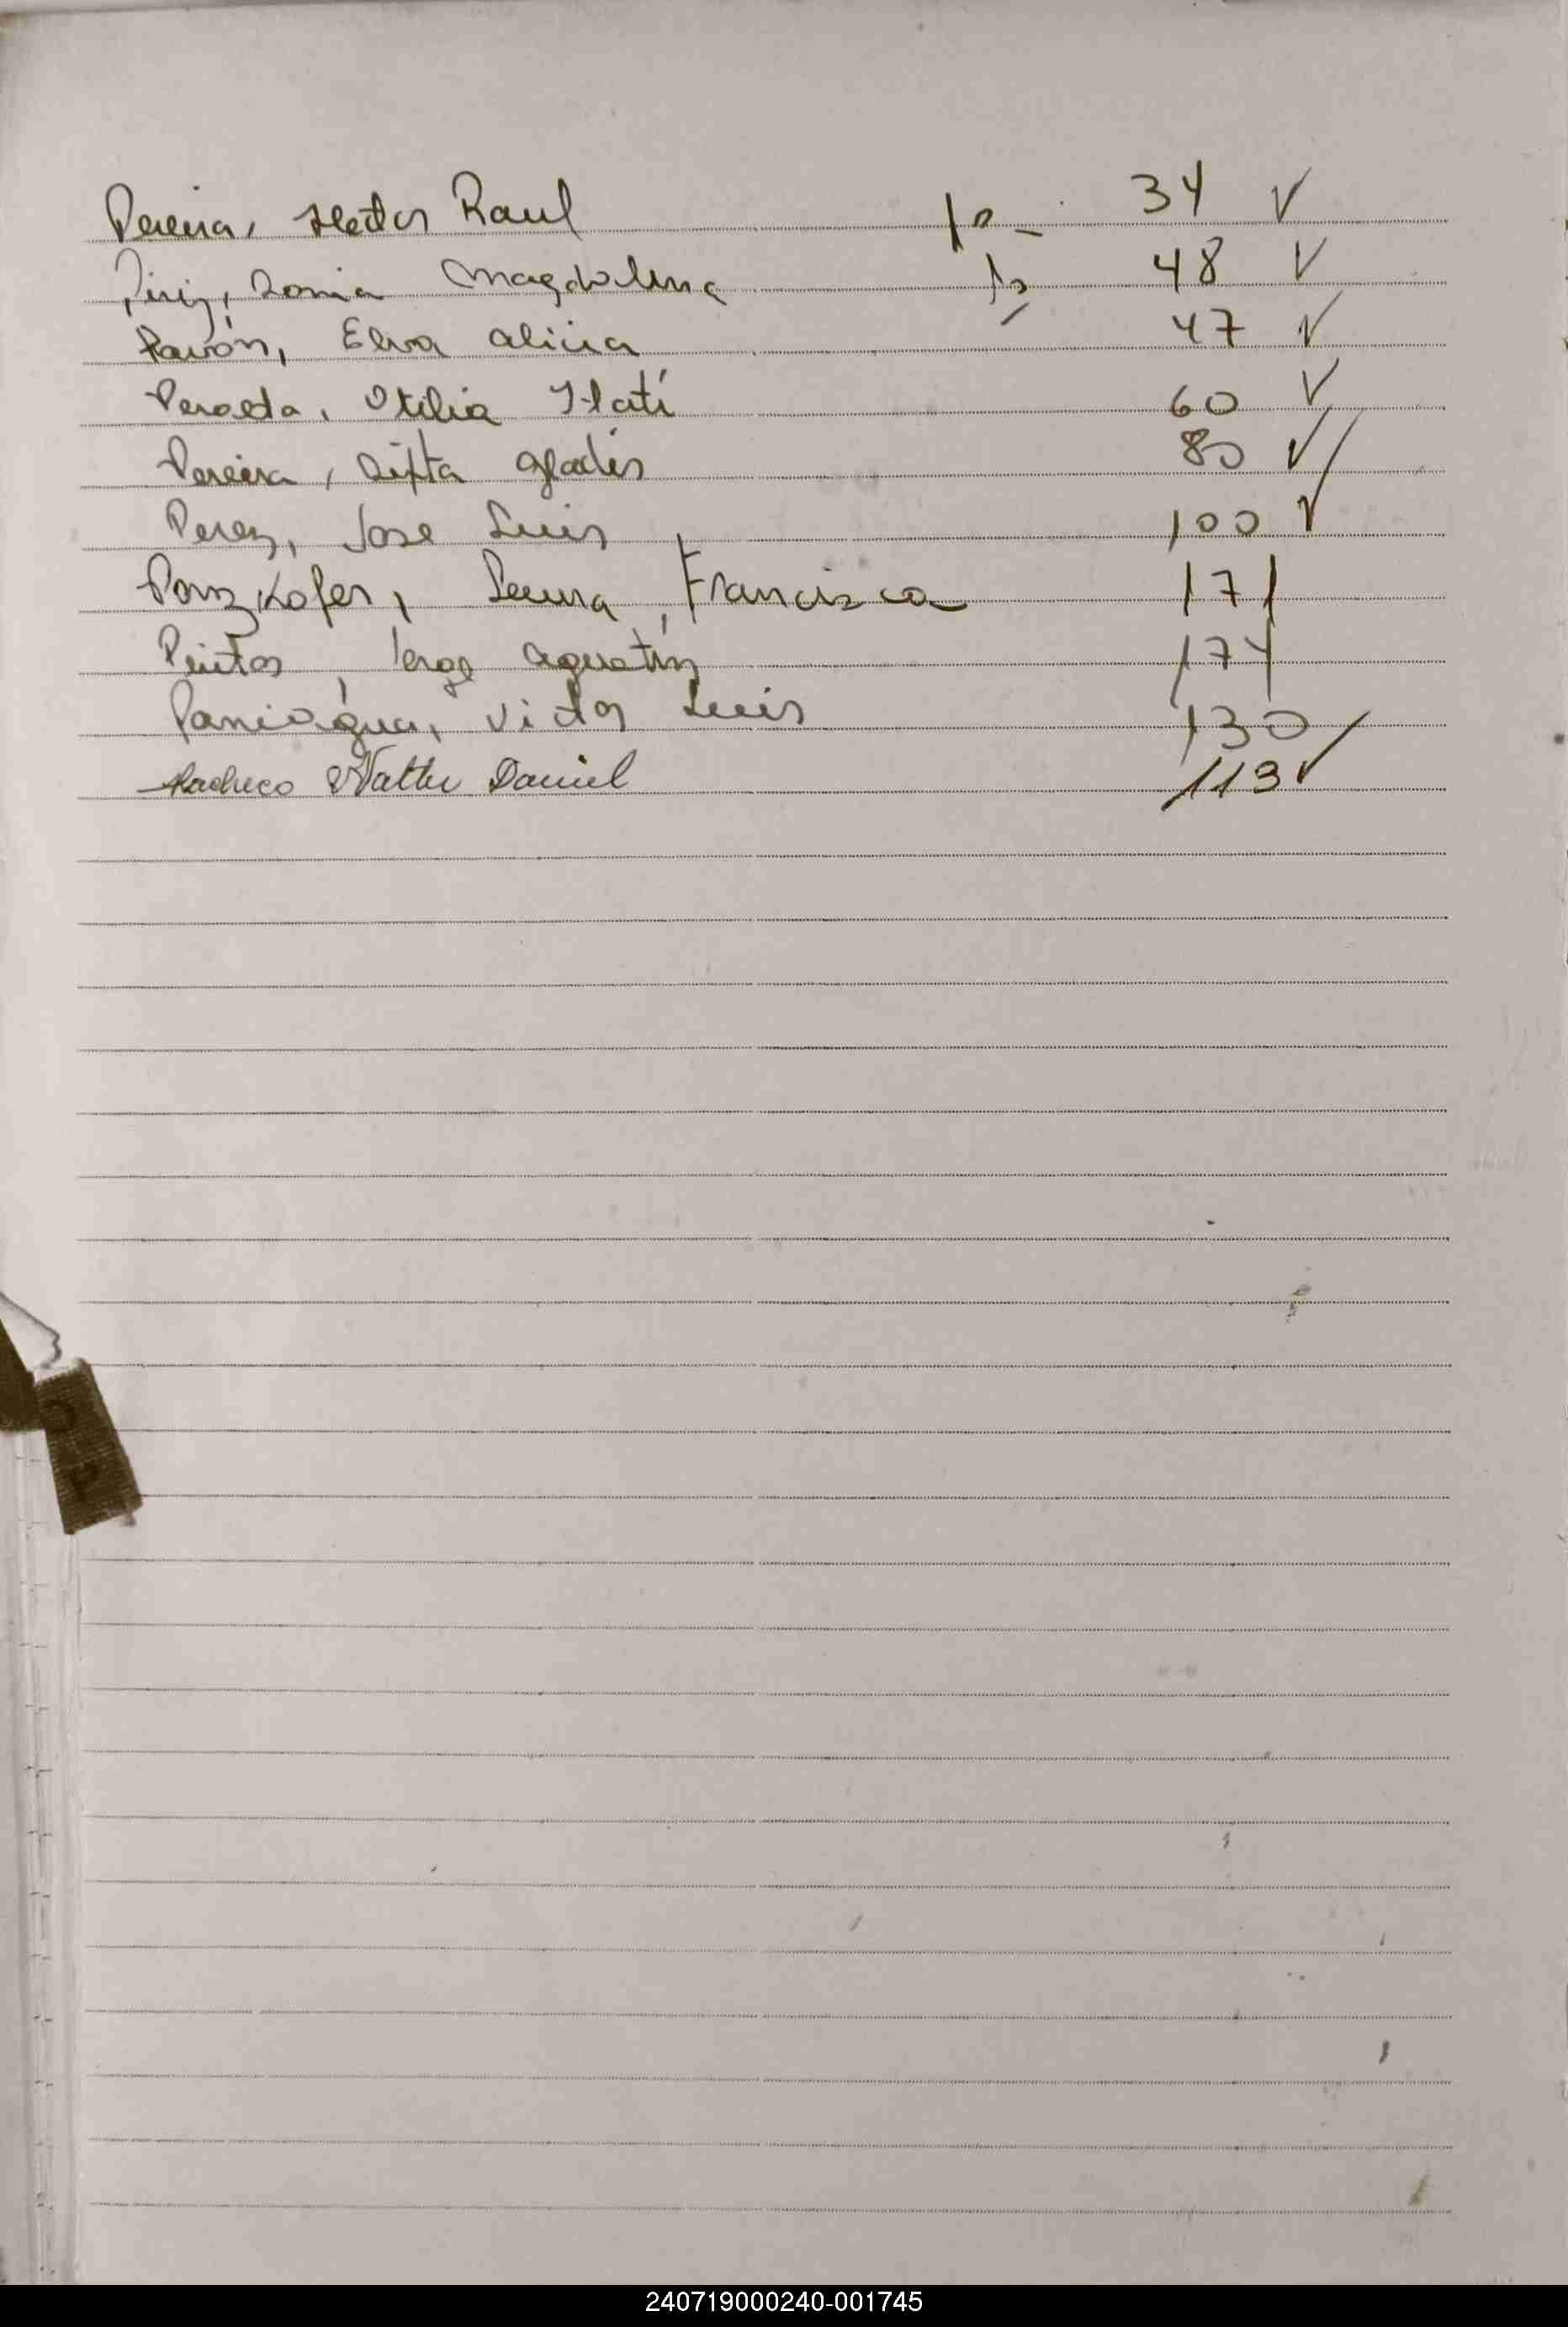 Pereira, Hector Raul 34 ✓
Piriz, Sonia Magdalena 48 ✓
Pavón, Elva Alicia 47 ✓
Peralta, Otilia Itatí 60 ✓
Pereira, Sixta Gladis 80 ✓
Perez, Jose Luis 100 ✓
Panzkofer, Laura Francisca 171
Pintos, Jorge Agustín 174
Paniagua, Victor Luis 130
Pacheco Walter Daniel 113 ✓
O P
240719000240-001745